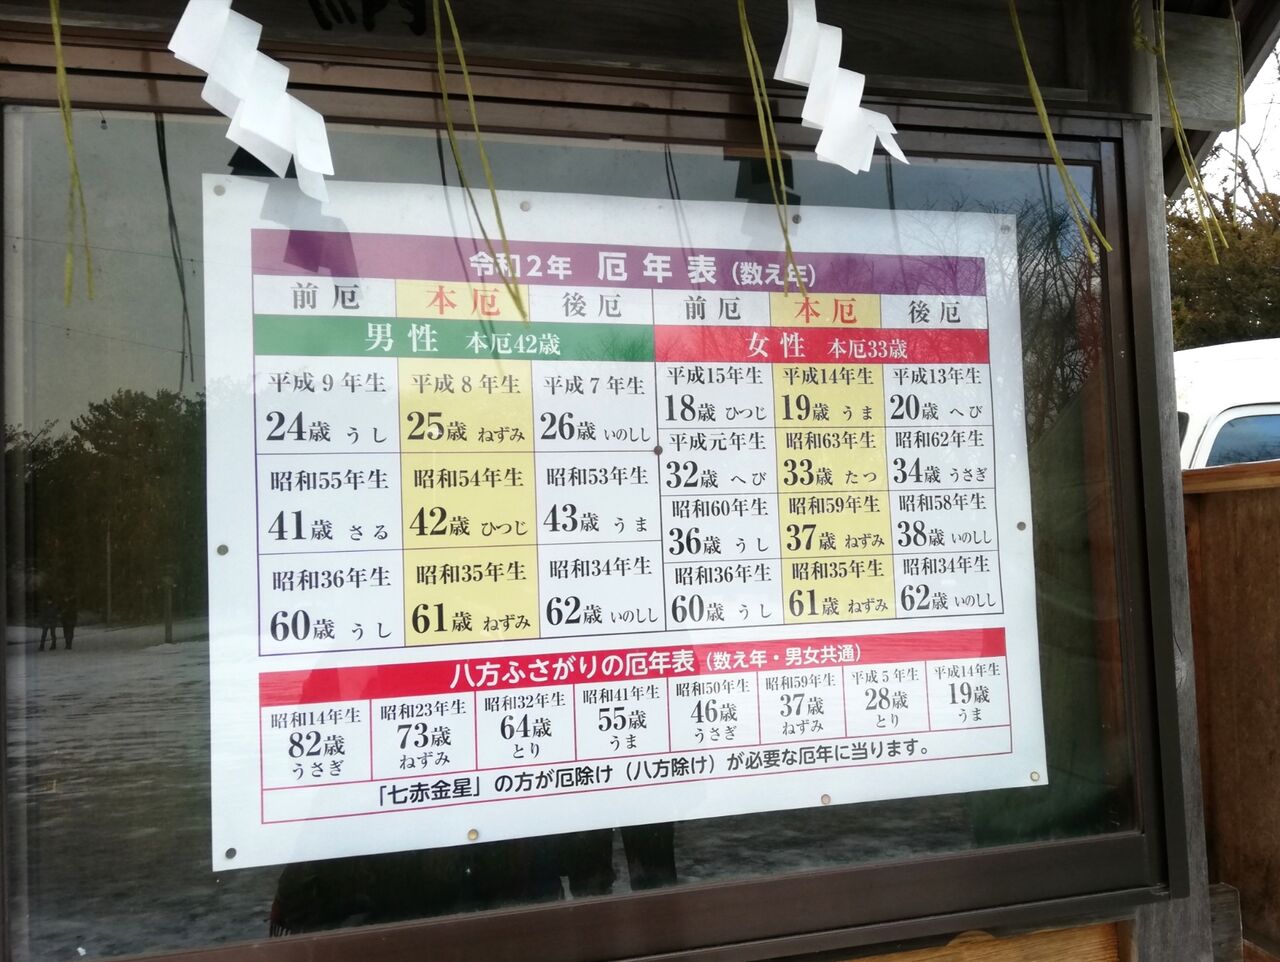 令和2年 厄年表 (数え年)
前厄 本厄 後厄 前厄 本厄 後厄
男性 本厄42歳 女性 本厄33歳
平成9年生 平成8年生 平成7年生
24歳 うし 25歳 ねずみ 26歳 いのしし
昭和55年生 昭和54年生 昭和53年生
41歳 さる 42歳 ひつじ 43歳 うま
昭和36年生 昭和35年生 昭和34年生
60歳 うし 61歳 ねずみ 62歳 いのしし
平成15年生 平成14年生 平成13年生
18歳 ひつじ 19歳 うま 20歳 へび
平成元年生 昭和63年生 昭和62年生
32歳 へび 33歳 たつ 34歳 うさぎ
昭和60年生 昭和59年生 昭和58年生
36歳 うし 37歳 ねずみ 38歳 いのしし
昭和36年生 昭和35年生 昭和34年生
60歳 うし 61歳 ねずみ 62歳 いのしし
八方ふさがりの厄年表 (数え年・男女共通)
昭和14年生 昭和23年生 昭和32年生 昭和41年生 昭和50年生 昭和59年生 平成5年生 平成14年生
82歳 73歳 64歳 55歳 46歳 37歳 28歳 19歳
うさぎ ねずみ とり うま うさぎ ねずみ とり うま
「七赤金星」の方が厄除け(八方除け)が必要な厄年に当ります。